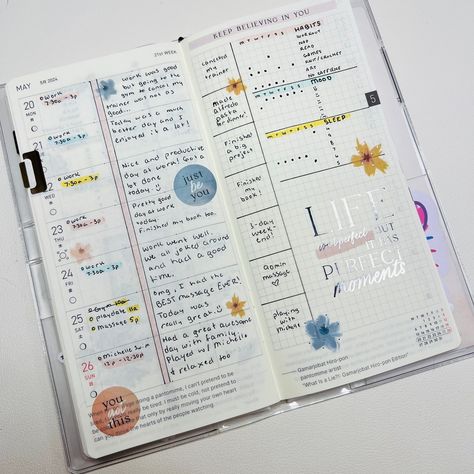 MAY
5/6 2024
21ST WEEK
20
MON
work
7:30a - 3p
work was good
but going to the
gym to cancel my
trainer was not so
good
21
work
7:30a - 3p
Today was a much
better day and I
enjoyed it a lot!
22
work
7:30a - 3p
Nice and productive
day at work! Got a
lot done
today
just
be
you
23
work
7:30a - 3p
Pretty good
day at work
Today.
Finished my book too.
24
FRI
work
7:30a - 3p
Work went well.
We all joked around
and had a good
time.
25
SAT
playdate 11a
massage 5p
omg, I had the
BEST massage EVER!
Today was
really great
26
SUN
Michelle Swim
12p - 12:30p
Had a great awesome
day with family
Played w/ Michelle
& relaxed too
you
got
this
be really tired. I must be cold, not pretend to
that only by really moving your own heart
can you move the hearts of the people watching.
KEEP BELIEVING IN YOU
HABITS
M T W T F S S
WORKOUT
READ
GAMES
KNIT/CROCHET
ART
NO CAFFEINE
canceled
my
trainer
made
alfredo
pasta
for dinner!
finished
a big
project!
Finished
my
book!
1-day
week-
end!
90min
massage
playing
with
Michelle
M T W T F S S
MOOD
M T W T F S S
SLEEP
5
LIFE
isn't perfect BUT
IT HAS
PERFECT
moments
Gamarjobat Hiro-pon
pantomime artist
"What is a Lie?!: Gamarjobat Hiro-pon Edition"